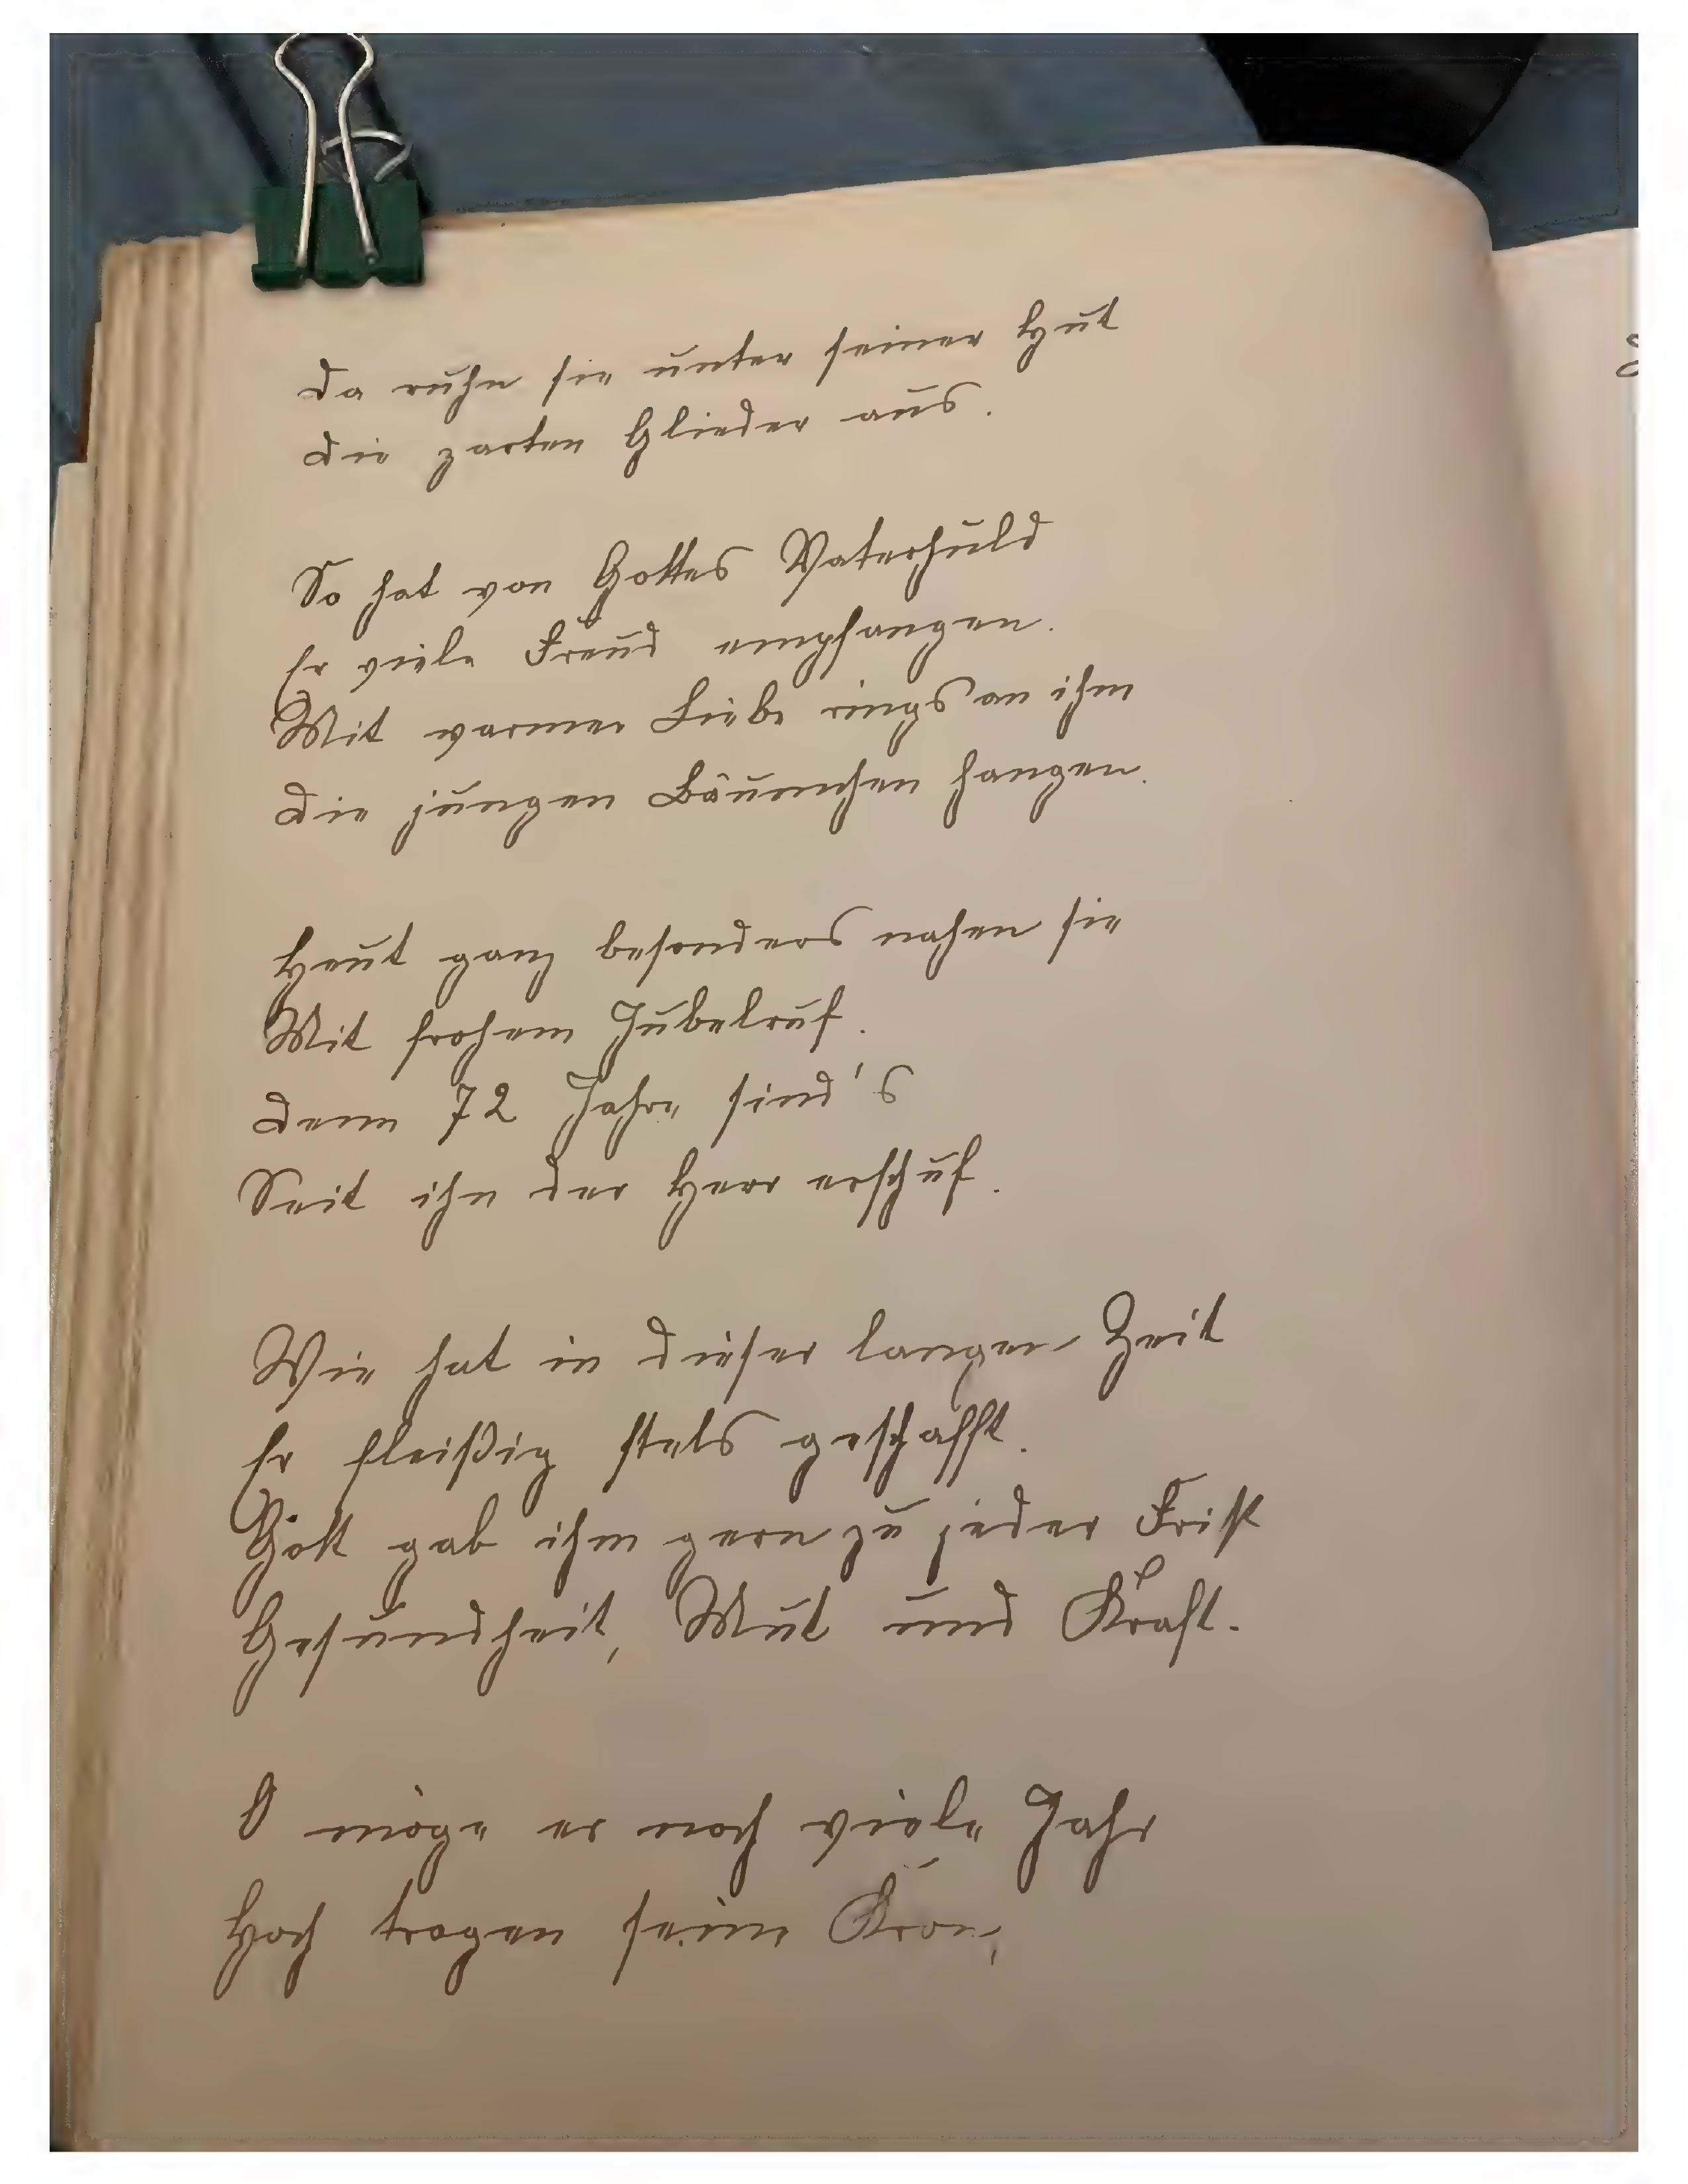 Da ruhn sie unter seiner Hut
Die zarten Glieder aus.
So hat von Gottes Vaterhuld
Er viele Freud empfangen.
Mit warmer Liebe rings an ihm
Die jungen Bäumchen hangen.
Heut ganz besonders nahen sie
Mit frohem Jubelruf.
Denn 72 Jahre sind's
Seit ihn der Herr erschuf.
Wie hat in dieser langen Zeit
Er fleißig stets geschafft.
Gott gab ihm gern zu jeder Frist
Gesundheit, Mut und Kraft.
O möge er noch viele Jahr
Hoch tragen seine Kron,